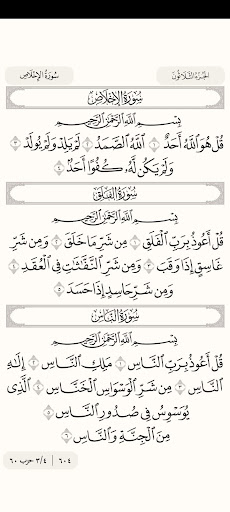 الجزء الثلاثون
سورة الإخلاص
سُورَةُ الإِخْلَاصِ
بِسْمِ اللَّهِ الرَّحْمَٰنِ الرَّحِيمِ
قُلْ هُوَ اللَّهُ أَحَدٌ ١ اللَّهُ الصَّمَدُ ٢ لَمْ يَلِدْ وَلَمْ يُولَدْ ٣
وَلَمْ يَكُن لَّهُ كُفُوًا أَحَدٌ ٤
سُورَةُ الفَلَقِ
بِسْمِ اللَّهِ الرَّحْمَٰنِ الرَّحِيمِ
قُلْ أَعُوذُ بِرَبِّ الْفَلَقِ ١ مِن شَرِّ مَا خَلَقَ ٢ وَمِن شَرِّ
غَاسِقٍ إِذَا وَقَبَ ٣ وَمِن شَرِّ النَّفَّاثَاتِ فِي الْعُقَدِ ٤
وَمِن شَرِّ حَاسِدٍ إِذَا حَسَدَ ٥
سُورَةُ النَّاسِ
بِسْمِ اللَّهِ الرَّحْمَٰنِ الرَّحِيمِ
قُلْ أَعُوذُ بِرَبِّ النَّاسِ ١ مَلِكِ النَّاسِ ٢ إِلَٰهِ
النَّاسِ ٣ مِن شَرِّ الْوَسْوَاسِ الْخَنَّاسِ ٤ الَّذِي
يُوَسْوِسُ فِي صُدُورِ النَّاسِ ٥
مِنَ الْجِنَّةِ وَالنَّاسِ ٦
٦٠٤ | ٣/٤ حزب ٦٠